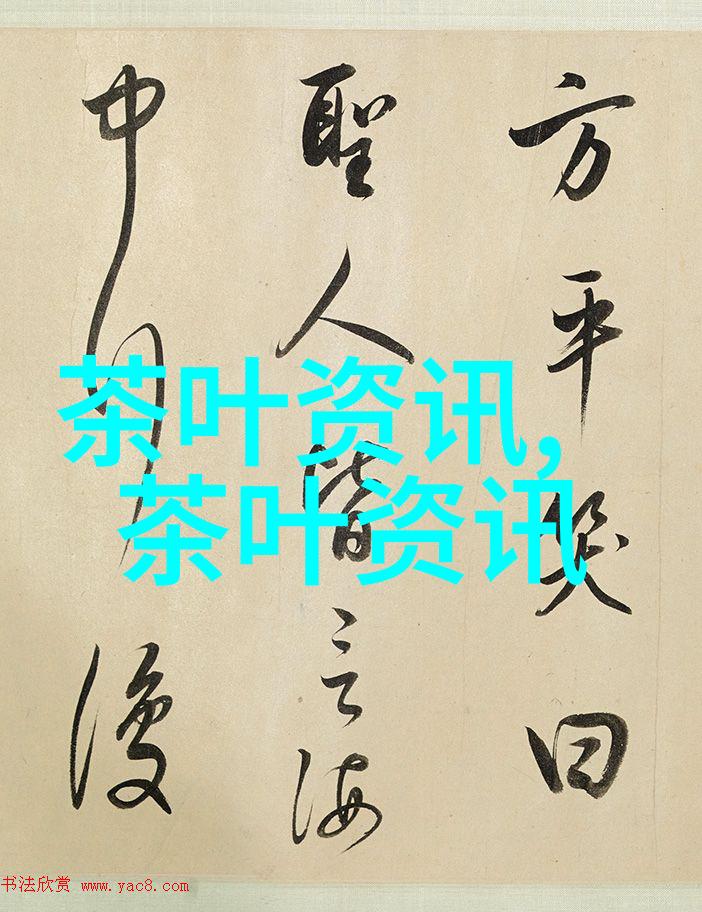 方平笑曰
聖人皆言海
中行復
茶叶资讯,
茶叶资讯
书法欣赏 www.yac8.com